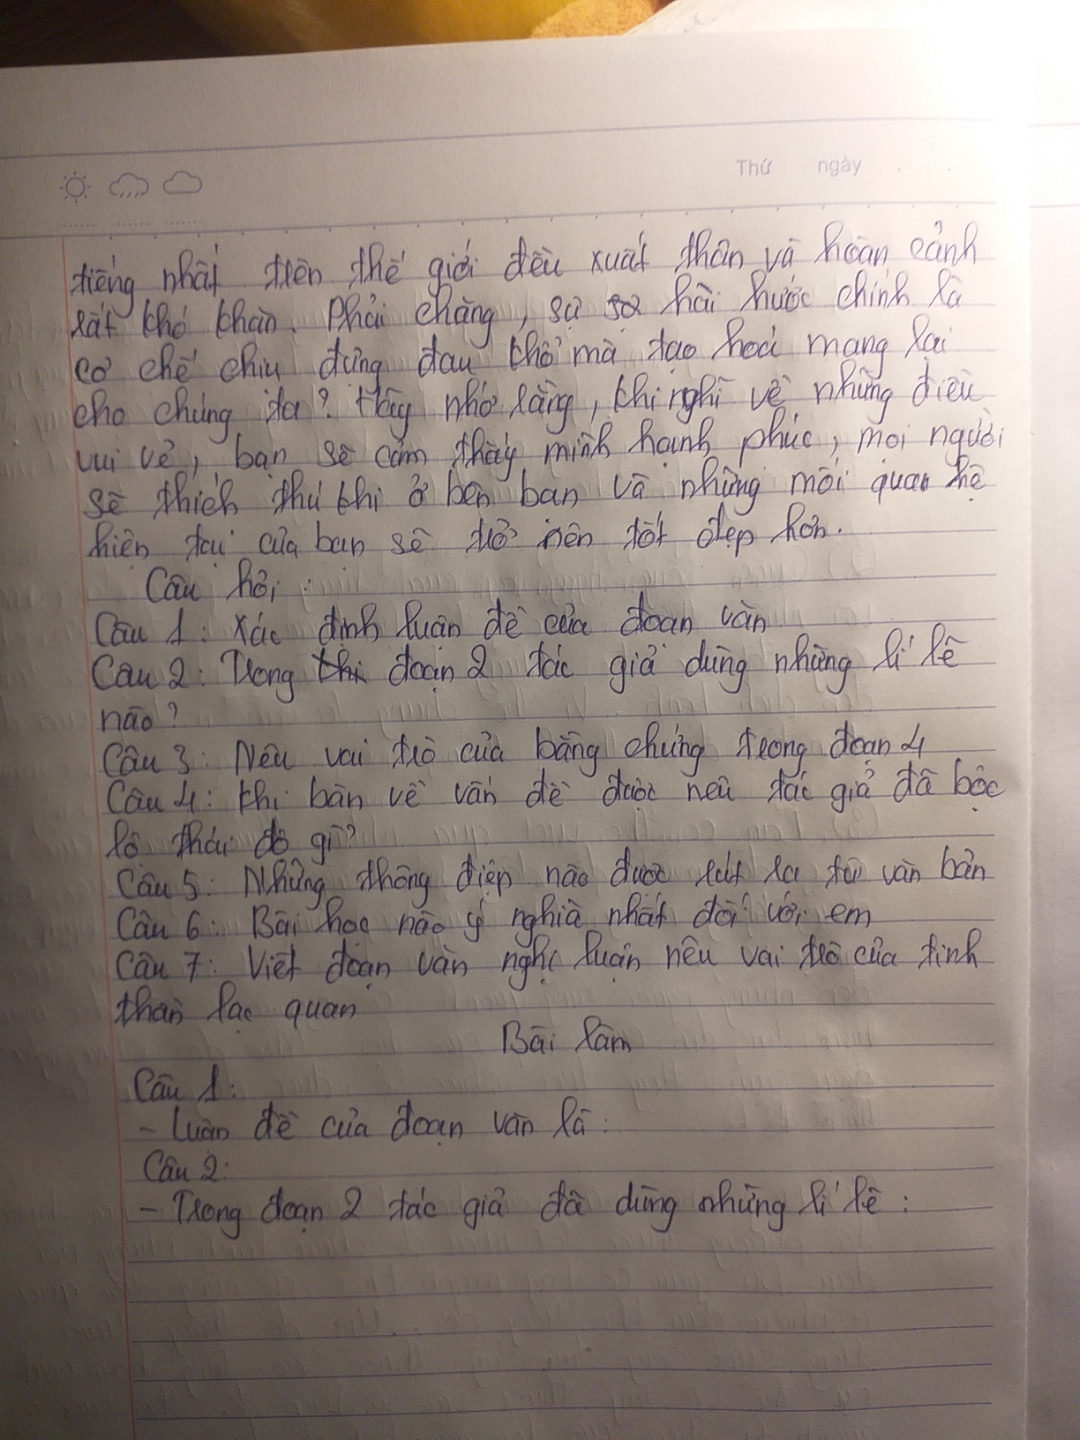 Thứ ngày
tiếng nhất trên thế giới đều xuất thân và hoàn cảnh
rất khó khăn. Phải chăng, sự sợ hài hước chính là
cơ chế chịu đựng đau khổ mà tạo hoá mang lại
cho chúng ta? Hãy nhớ rằng, khi nghĩ về những điều
vui vẻ, bạn sẽ cảm thấy mình hạnh phúc, mọi người
sẽ thích thú khi ở bên bạn và những mối quan hệ
hiện tại của bạn sẽ trở nên tốt đẹp hơn.
Câu hỏi :
Câu 1: Xác định luận đề của đoạn văn
Câu 2: Trong thi đoạn 2 tác giả dùng những lí lẽ
nào?
Câu 3: Nêu vai trò của bằng chứng trong đoạn 4
Câu 4: Khi bàn về vấn đề được nêu tác giả đã bộc
lộ thái độ gì?
Câu 5: Những thông điệp nào được rút ra từ văn bản
Câu 6: Bài học nào ý nghĩa nhất đối với em
Câu 7: Viết đoạn văn nghị luận nêu vai trò của tinh
thần lạc quan
Bài làm
Câu 1:
- Luận đề của đoạn văn là :
Câu 2:
- Trong đoạn 2 tác giả đã dùng những lí lẽ :